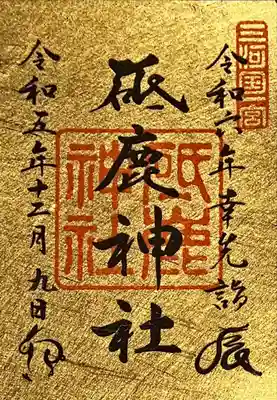 三河国一宮
令和六年幸先詣 辰
砥鹿神社
砥鹿神社
令和五年十二月九日 卯